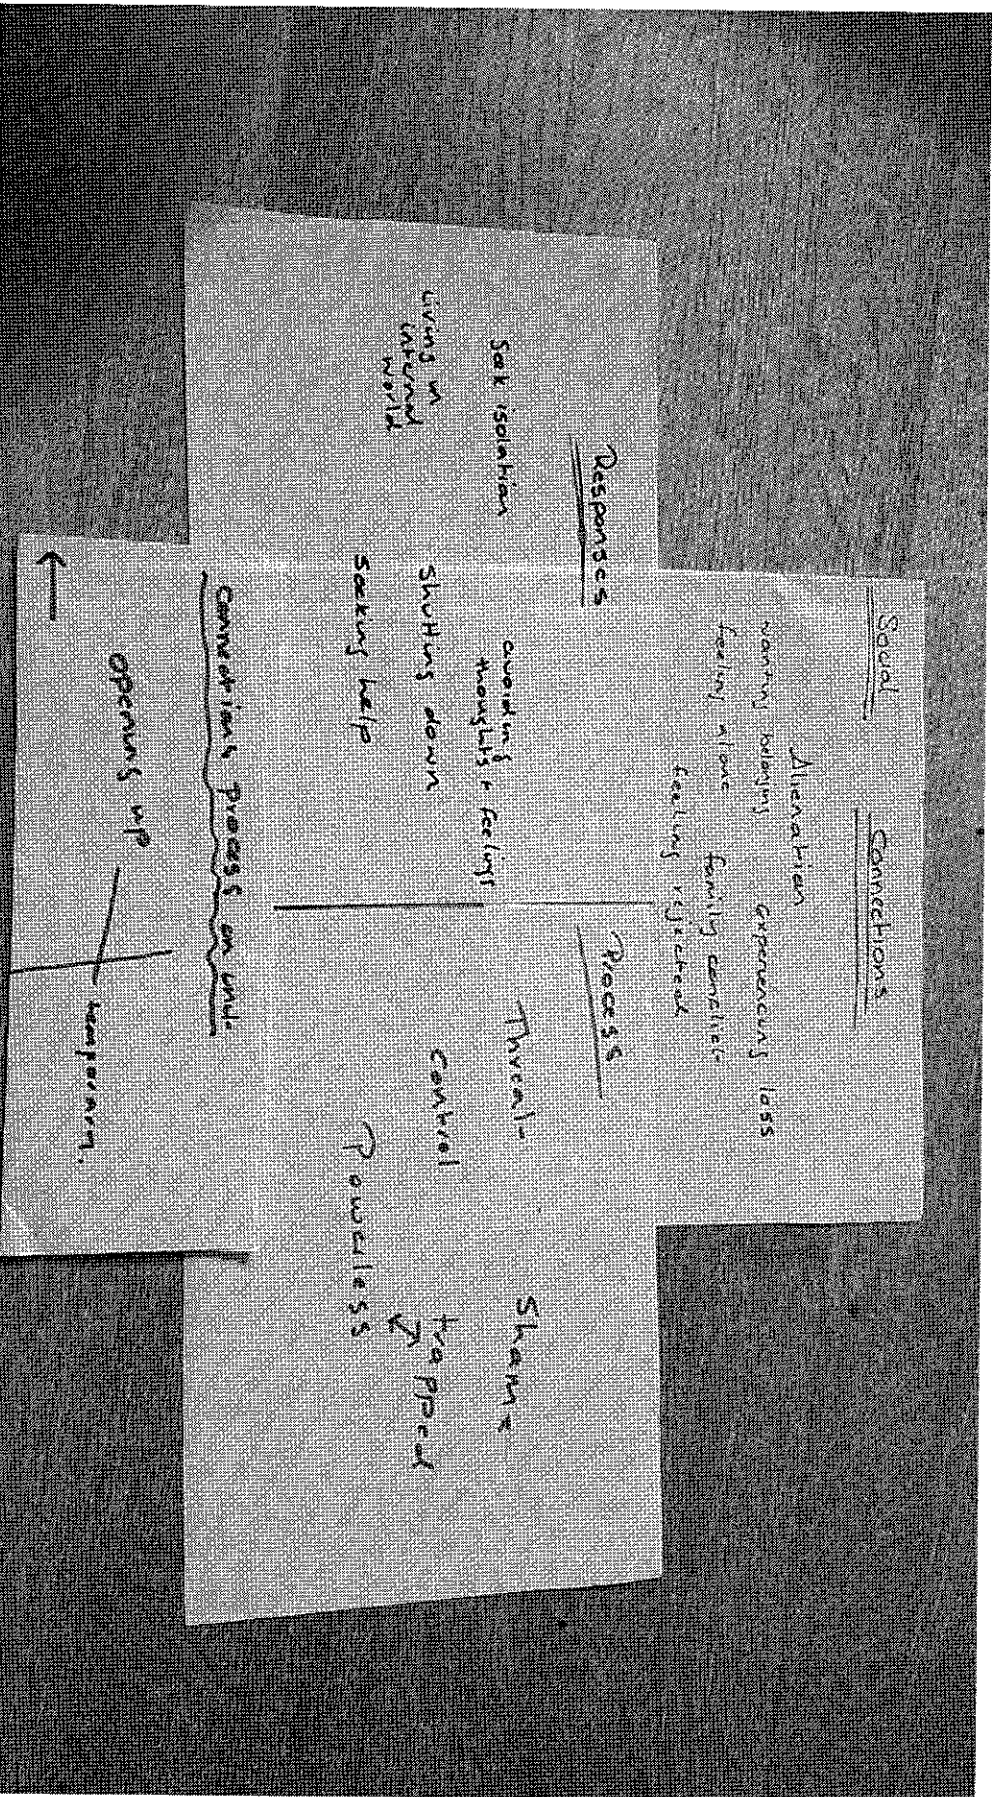 Social Connections
Alienation
wanting belonging experiencing loss
feeling alone family conflict
feeling rejected
Responses
Seek isolation
avoiding
thoughts + feelings
Living in
internal
world
Shutting down
Seeking help
Process
Threat
Shame
Control
trapped
Powerless
Connections process on
opening up
temporary.